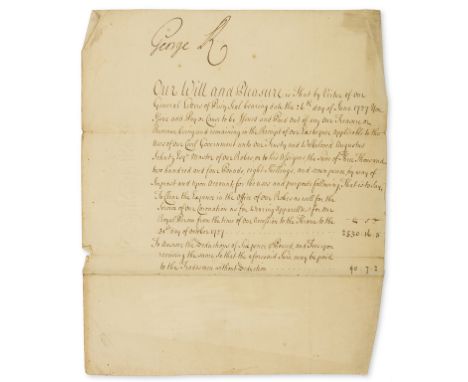 George R
Our Will and Pleasure is That by Virtue of our
General Letters of Privy Seal bearing date the 26th day of June 1727 You
Issue and Pay or Cause to be Issued and Paid out of any our Treasure or
Revenue being and remaining in the Receipt of our Exchequer applicable to the
Uses of our Civil Government unto our Trusty and Welbeloved Augustus
Schutz Esqr Master of our Robes, or to his Assigns the sume of Three Thousand
two hundred and four Pounds, eight Shillings, and seven pence by way of
Imprest and upon Account for the uses and purposes following That is to say,
the Expence in the Office of our Robes as well for the
Service of our Coronation as for Wearing Apparell &c for our
Royal Person from the time of our Accession to the Throne to the
day of October 1727
To Answer the Deductions of Sixpence Pound, and Fees upon
receiving the same So that the aforesaid Sum may be paid
to the Tradesmen without Deduction 90 7 2